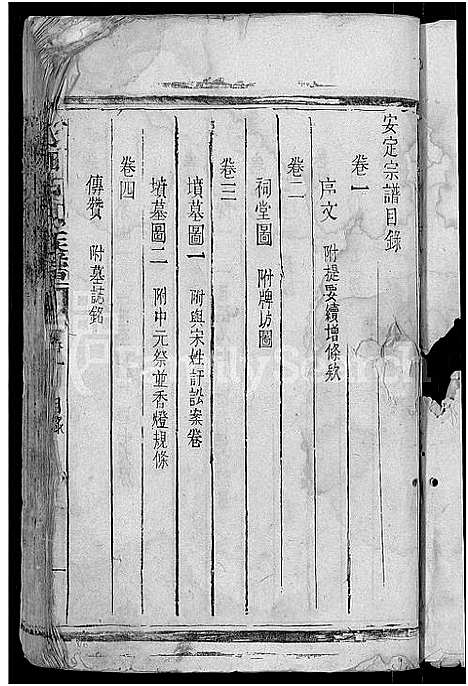 安定宗譜目錄
卷一
序文 附提要續增條款
卷二
祠堂圖 附牌坊圖
卷三
墳墓圖一 附與宋姓訐訟案卷
墳墓圖二 附中元祭並香燈規條
卷四
傳贊 附墓誌銘
目錄
FamilySearch